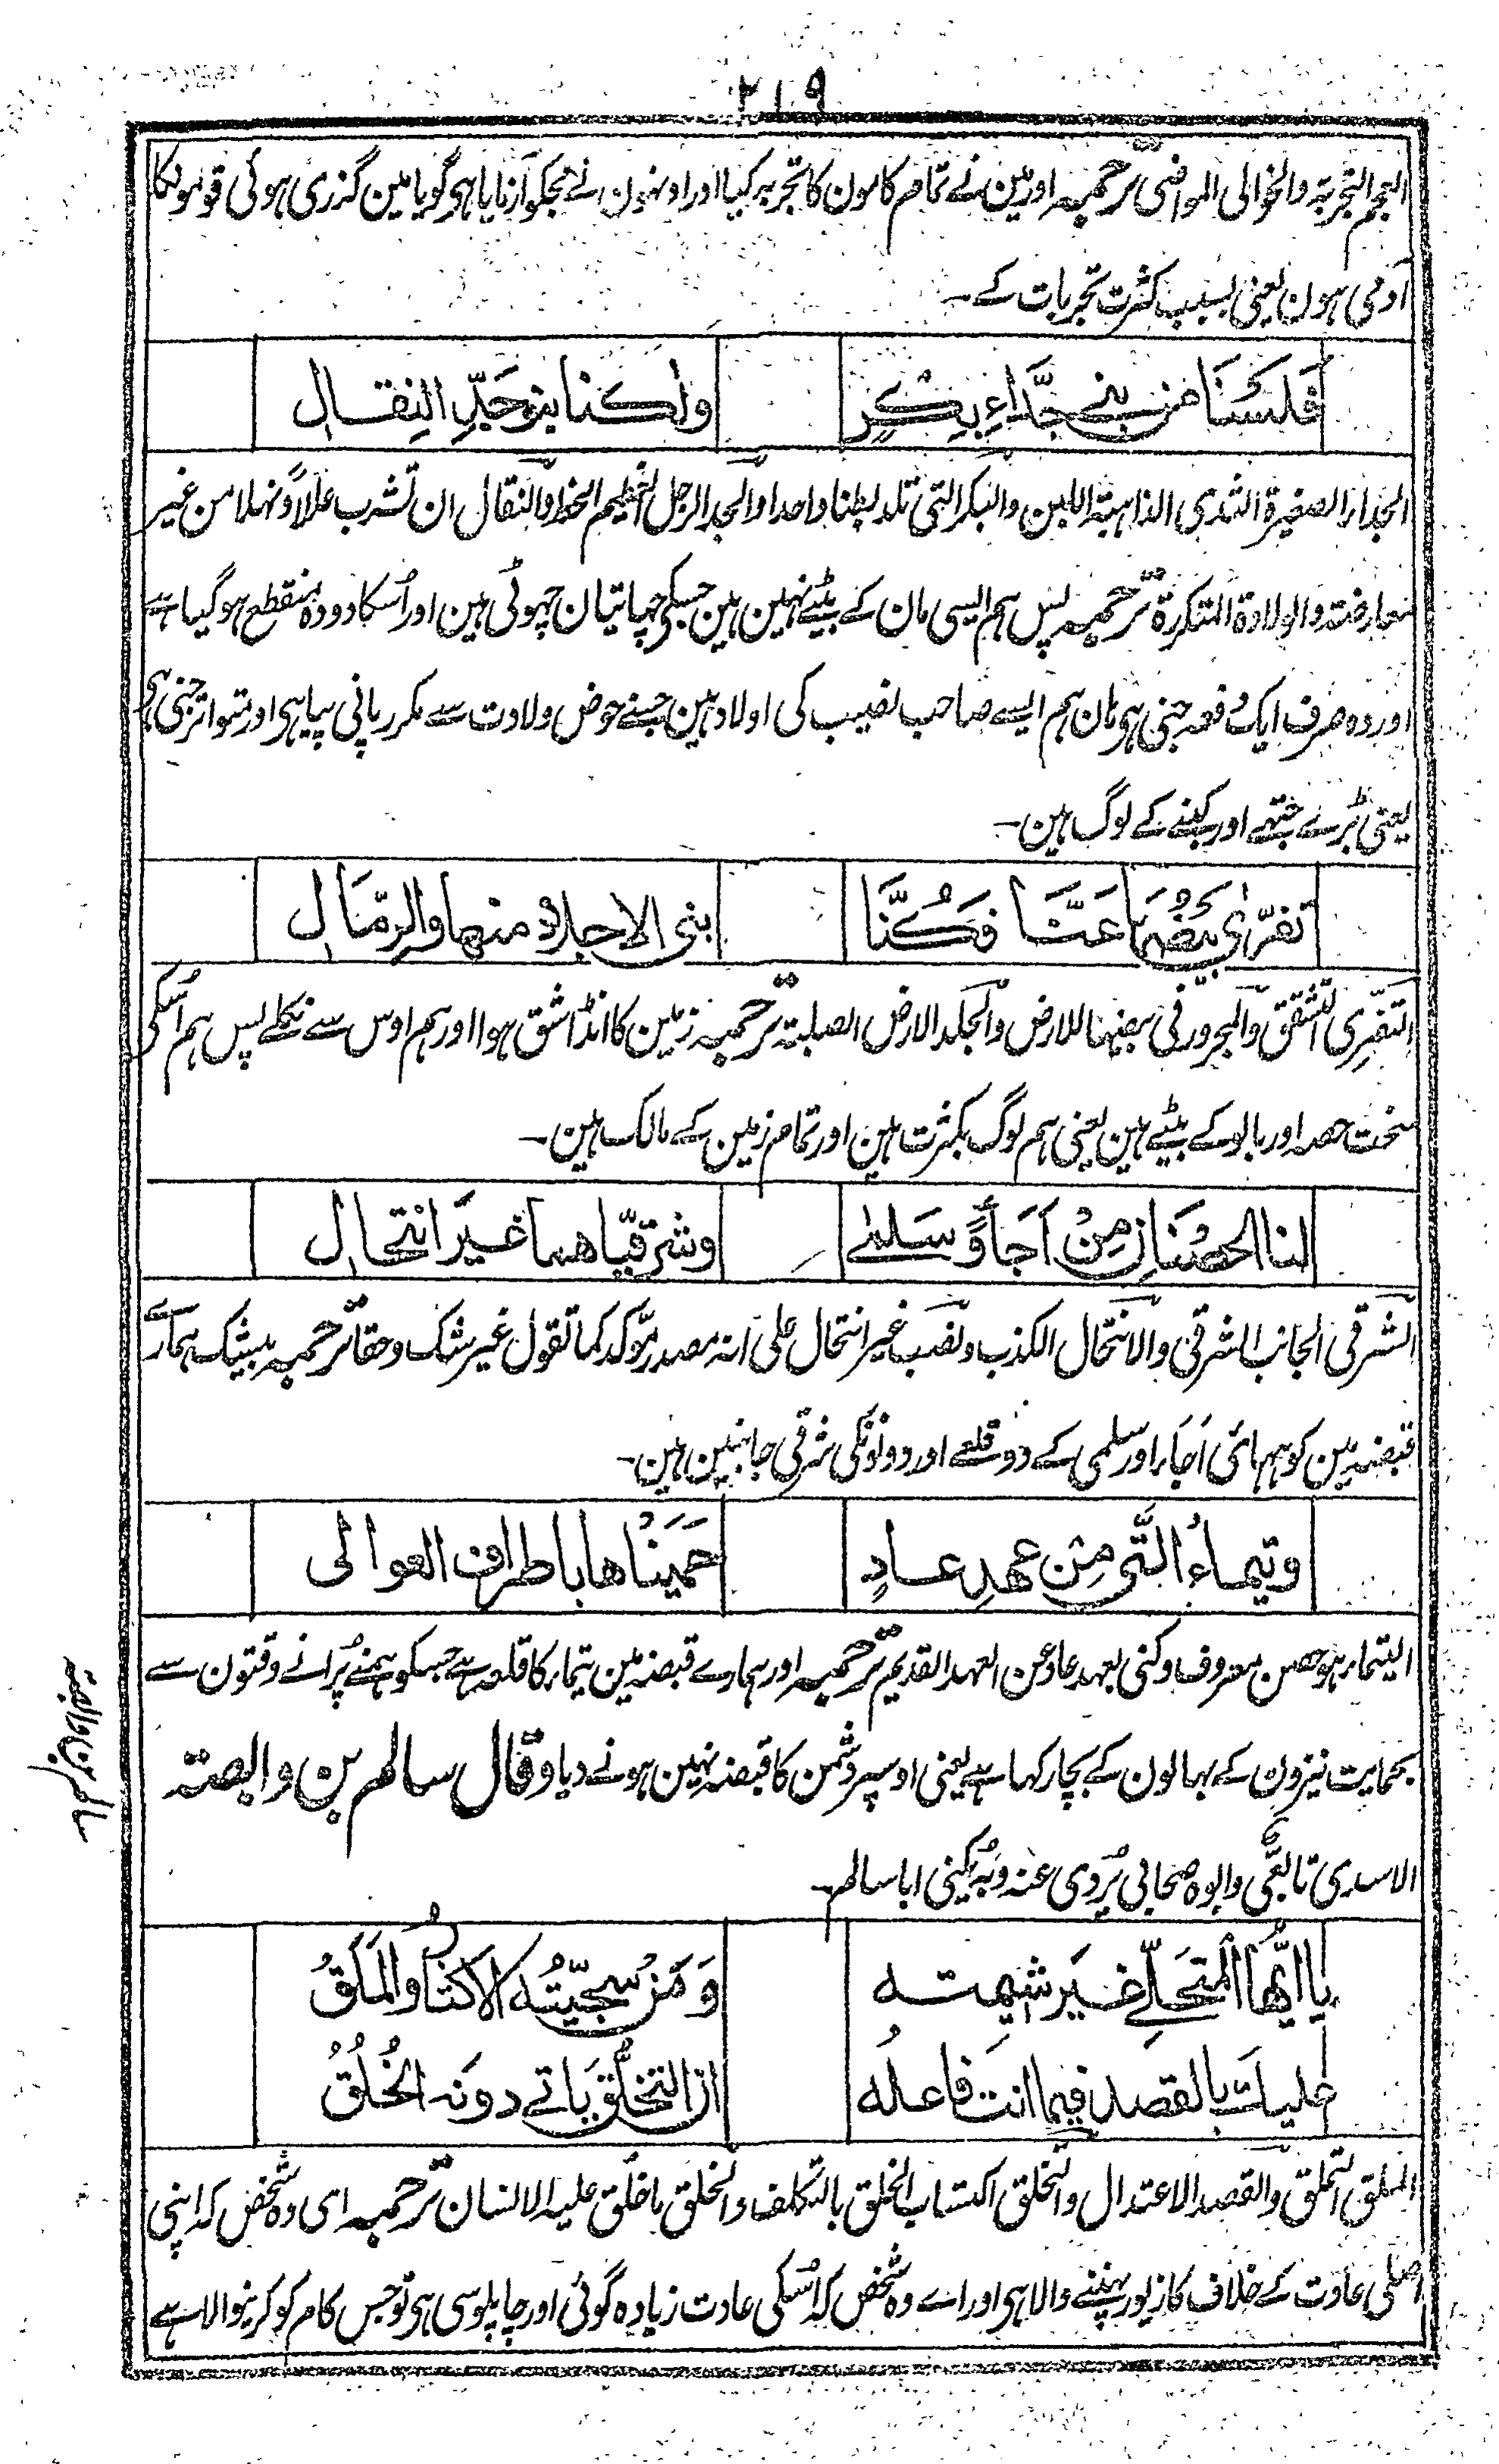 ۲۱۹
العجم التجربة والخوالی المواضی ترجمہ اور مین نے تمام کامون کا تجربہ کیا اور اونہون نے مجکو آزمایا ہی گویا مین گذری ہوئی قومونکا
آدمی ہون یعنی بسبب کثرت تجربات کے۔
فَلَسْنَا من بنی جدَّاءِ بِكْرٍ ولكنا بنو جَدِّ النِقَال
الجداء الصغیرة الثدی الذاهبة اللبن والبکر التی تلد بطنا واحدا والجد الرجل العظیم الحظ والنقال ان تشرب عللا ونهلا من غیر
معارضة والولادة المتکررة ترجمہ پس ہم ایسی مان کے بیٹے نہین ہین جسکی چہاتیان چہوٹی ہین اور اُسکا دودہ منقطع ہوگیا ہے
اور وہ صرف ایک دفعہ جنی ہی ہان ہم ایسے صاحب نصیب کی اولاد ہین جسنے حوض ولادت سے مکرر پانی پیا ہی اور متواتر جنی ہی
یعنی بڑے جتھے اور کنبے کے لوگ ہین۔
تفرّى بيضُهَا عَنَّا فَكُنَّا بنی الاجلاد منها والرمَال
التفری التشقق والمجرور فی بیضها للارض والجلد الارض الصلبة ترجمہ زمین کا انڈا شق ہوا اور ہم اوس سے نکلے پس ہم اُسکی
سخت حصہ اور بالو کے بیٹے ہین یعنی ہم لوگ بکثرت ہین اور تمام زمین کے مالک ہین۔
لنا الحصْنَانِ مِنْ اَجَأٍ وَسَلمیٰ وشرقيّاهما غَيرَ انتحال
الشرقی الجانب الشرقی والانتحال الکذب ونصب غیر انتحال علی انه مصدر مؤکد کما تقول غیر شک وحقا ترجمہ بیشک ہمارے
قبضہ مین کوہہائی اَجَاء اور سلمی کے دو قلعے اور دونونکی شرقی جانبین ہین۔
وتيماءُ الَّتی مِن عهدِ عادٍ حَمَيْنَاها باطراف العوالی
التیماء ہو حصن معروف وکنی بعہد عاد عن العہد القدیم ترجمہ اور ہمارے قبضہ مین تیماء کا قلعہ ہے جسکو ہمنے پُرانے وقتون سے
بحمایت نیزون کے بہالون کے بچا رکہا ہے یعنی اوسپر دشمن کا قبضہ نہین ہونے دیا وقال سالم بن وابصته
سالم بن وابصتہ
الاسدی تابعیٌّ وابوہ صحابی یُروی عنہ وبہ یُکنی ابا سالم۔
يا ايُّها المُتَحَلِّی غَيرَ شیمتهِ وَمَنْ سجيّتُه الاكثارُ والمَلَقُ
عليك بالقصد فيما انتَ فاعلهُ انّ التخلُّقَ ياتی دونَه الخُلُقُ
الملق التملق والقصد الاعتدال والتخلق اکتساب الخلق بالتکلف والخلق ما خُلق علیه الانسان ترجمہ ای وہ شخص کہ اپنی
اصلی عادت کے خلاف کا زیور پہننے والا ہی اور اے وہ شخص کہ اُسکی عادت زیادہ گوئی اور چاپلوسی ہی تو جس کام کو کرنیوالا ہے